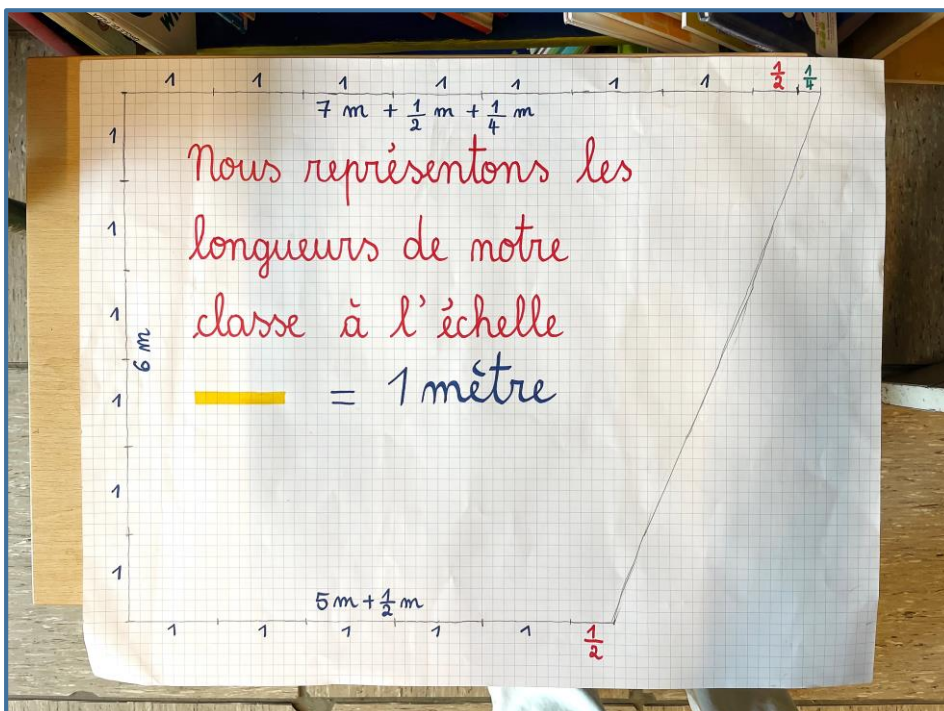 1 1 1 1 1 1 1 1/2 1/4
7 m + 1/2 m + 1/4 m
1
Nous représentons les
1
longueurs de notre
1
classe à l'échelle
6 m
1
= 1 mètre
1
1
5 m + 1/2 m
1 1 1 1 1 1/2